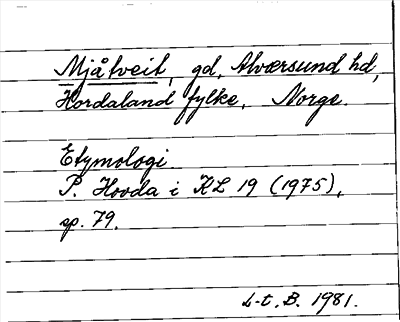 Mjåtveit, gd, Alværsund hd,
Hordaland fylke, Norge.
Etymologi
P. Hovda i KL 19 (1975),
sp. 79.
L-t. B. 1981.